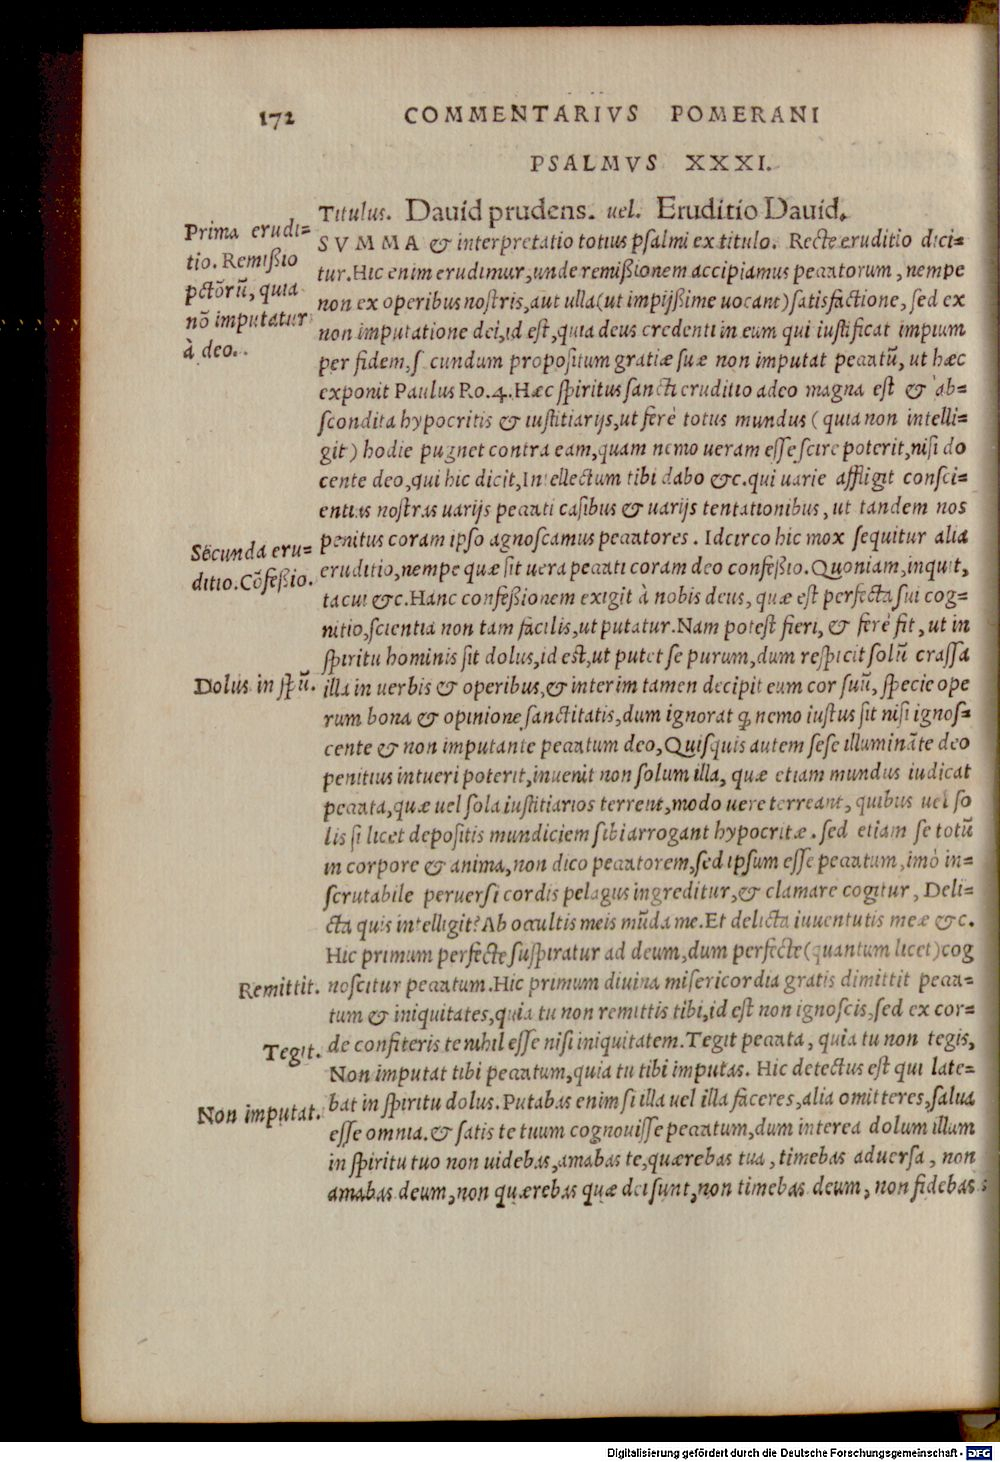 172 COMMENTARIVS POMERANI
PSALMVS XXXI.
Titulus. Dauid prudens. uel. Eruditio Dauid.
Prima erudi=
tio. Remißio
pctōrū, quia
nō imputatur
à deo.
SVMMA & interpretatio totius psalmi ex titulo. Recte eruditio dici=
tur. Hic enim erudimur, unde remißionem accipiamus peccatorum, nempe
non ex operibus nostris, aut ulla (ut impijßime uocant) satisfactione, sed ex
non imputatione dei, id est, quia deus credenti in eum qui iustificat impium
per fidem, s cundum propositum gratiæ suæ non imputat peccatū, ut hæc
exponit Paulus Ro. 4. Hæc spiritus sancti eruditio adeo magna est & ab=
scondita hypocritis & iustitiarijs, ut ferè totus mundus (quia non intelli=
git) hodie pugnet contra eam, quam nemo ueram esse scire poterit, nisi do
cente deo, qui hic dicit, Intellectum tibi dabo &c. qui uarie affligit consci=
entias nostras uarijs peccati casibus & uarijs tentationibus, ut tandem nos
penitus coram ipso agnoscamus peccatores. Idcirco hic mox sequitur alia
Secunda eru=
ditio. Cōfeßio.
eruditio, nempe quæ sit uera peccati coram deo confeßio. Quoniam, inquit,
tacui &c. Hanc confeßionem exigit à nobis deus, quæ est perfecta sui cog=
nitio, scientia non tam facilis, ut putatur. Nam potest fieri, & ferè fit, ut in
spiritu hominis sit dolus, id est, ut putet se purum, dum respicit solū crassa
Dolus in spū.
illa in uerbis & operibus, & interim tamen decipit eum cor suū, specie ope
rum bona & opinione sanctitatis, dum ignorat ꝙ nemo iustus sit nisi ignos=
cente & non imputante peccatum deo, Quisquis autem sese illumināte deo
penitius intueri poterit, inuenit non solum illa, quæ etiam mundus iudicat
peccata, quæ uel sola iustitiarios terrent, modo uere terreant, quibus uel so
lis si licet depositis mundiciem sibi arrogant hypocritæ. sed etiam se totū
in corpore & anima, non dico peccatorem, sed ipsum esse peccatum, imò in=
scrutabile peruersi cordis pelagus ingreditur, & clamare cogitur, Deli=
cta quis intelligit? Ab occultis meis mūda me. Et delicta iuuentutis meæ &c.
Hic primum perfecte suspiratur ad deum, dum perfecte (quantum licet) cog
Remittit.
noscitur peccatum. Hic primum diuina misericordia gratis dimittit pecca=
tum & iniquitates, quia tu non remittis tibi, id est non ignoscis, sed ex cor=
Tegit.
de confiteris te nihil esse nisi iniquitatem. Tegit peccata, quia tu non tegis,
Non imputat tibi peccatum, quia tu tibi imputas. Hic detectus est qui late=
Non imputat.
bat in spiritu dolus. Putabas enim si illa uel illa faceres, alia omitteres, salua
esse omnia. & satis te tuum cognouisse peccatum, dum interea dolum illum
in spiritu tuo non uidebas, amabas te, quærebas tua, timebas aduersa, non
amabas deum, non quærebas quæ dei sunt, non timebas deum, non fidebas
Digitalisierung gefördert durch die Deutsche Forschungsgemeinschaft - DFG